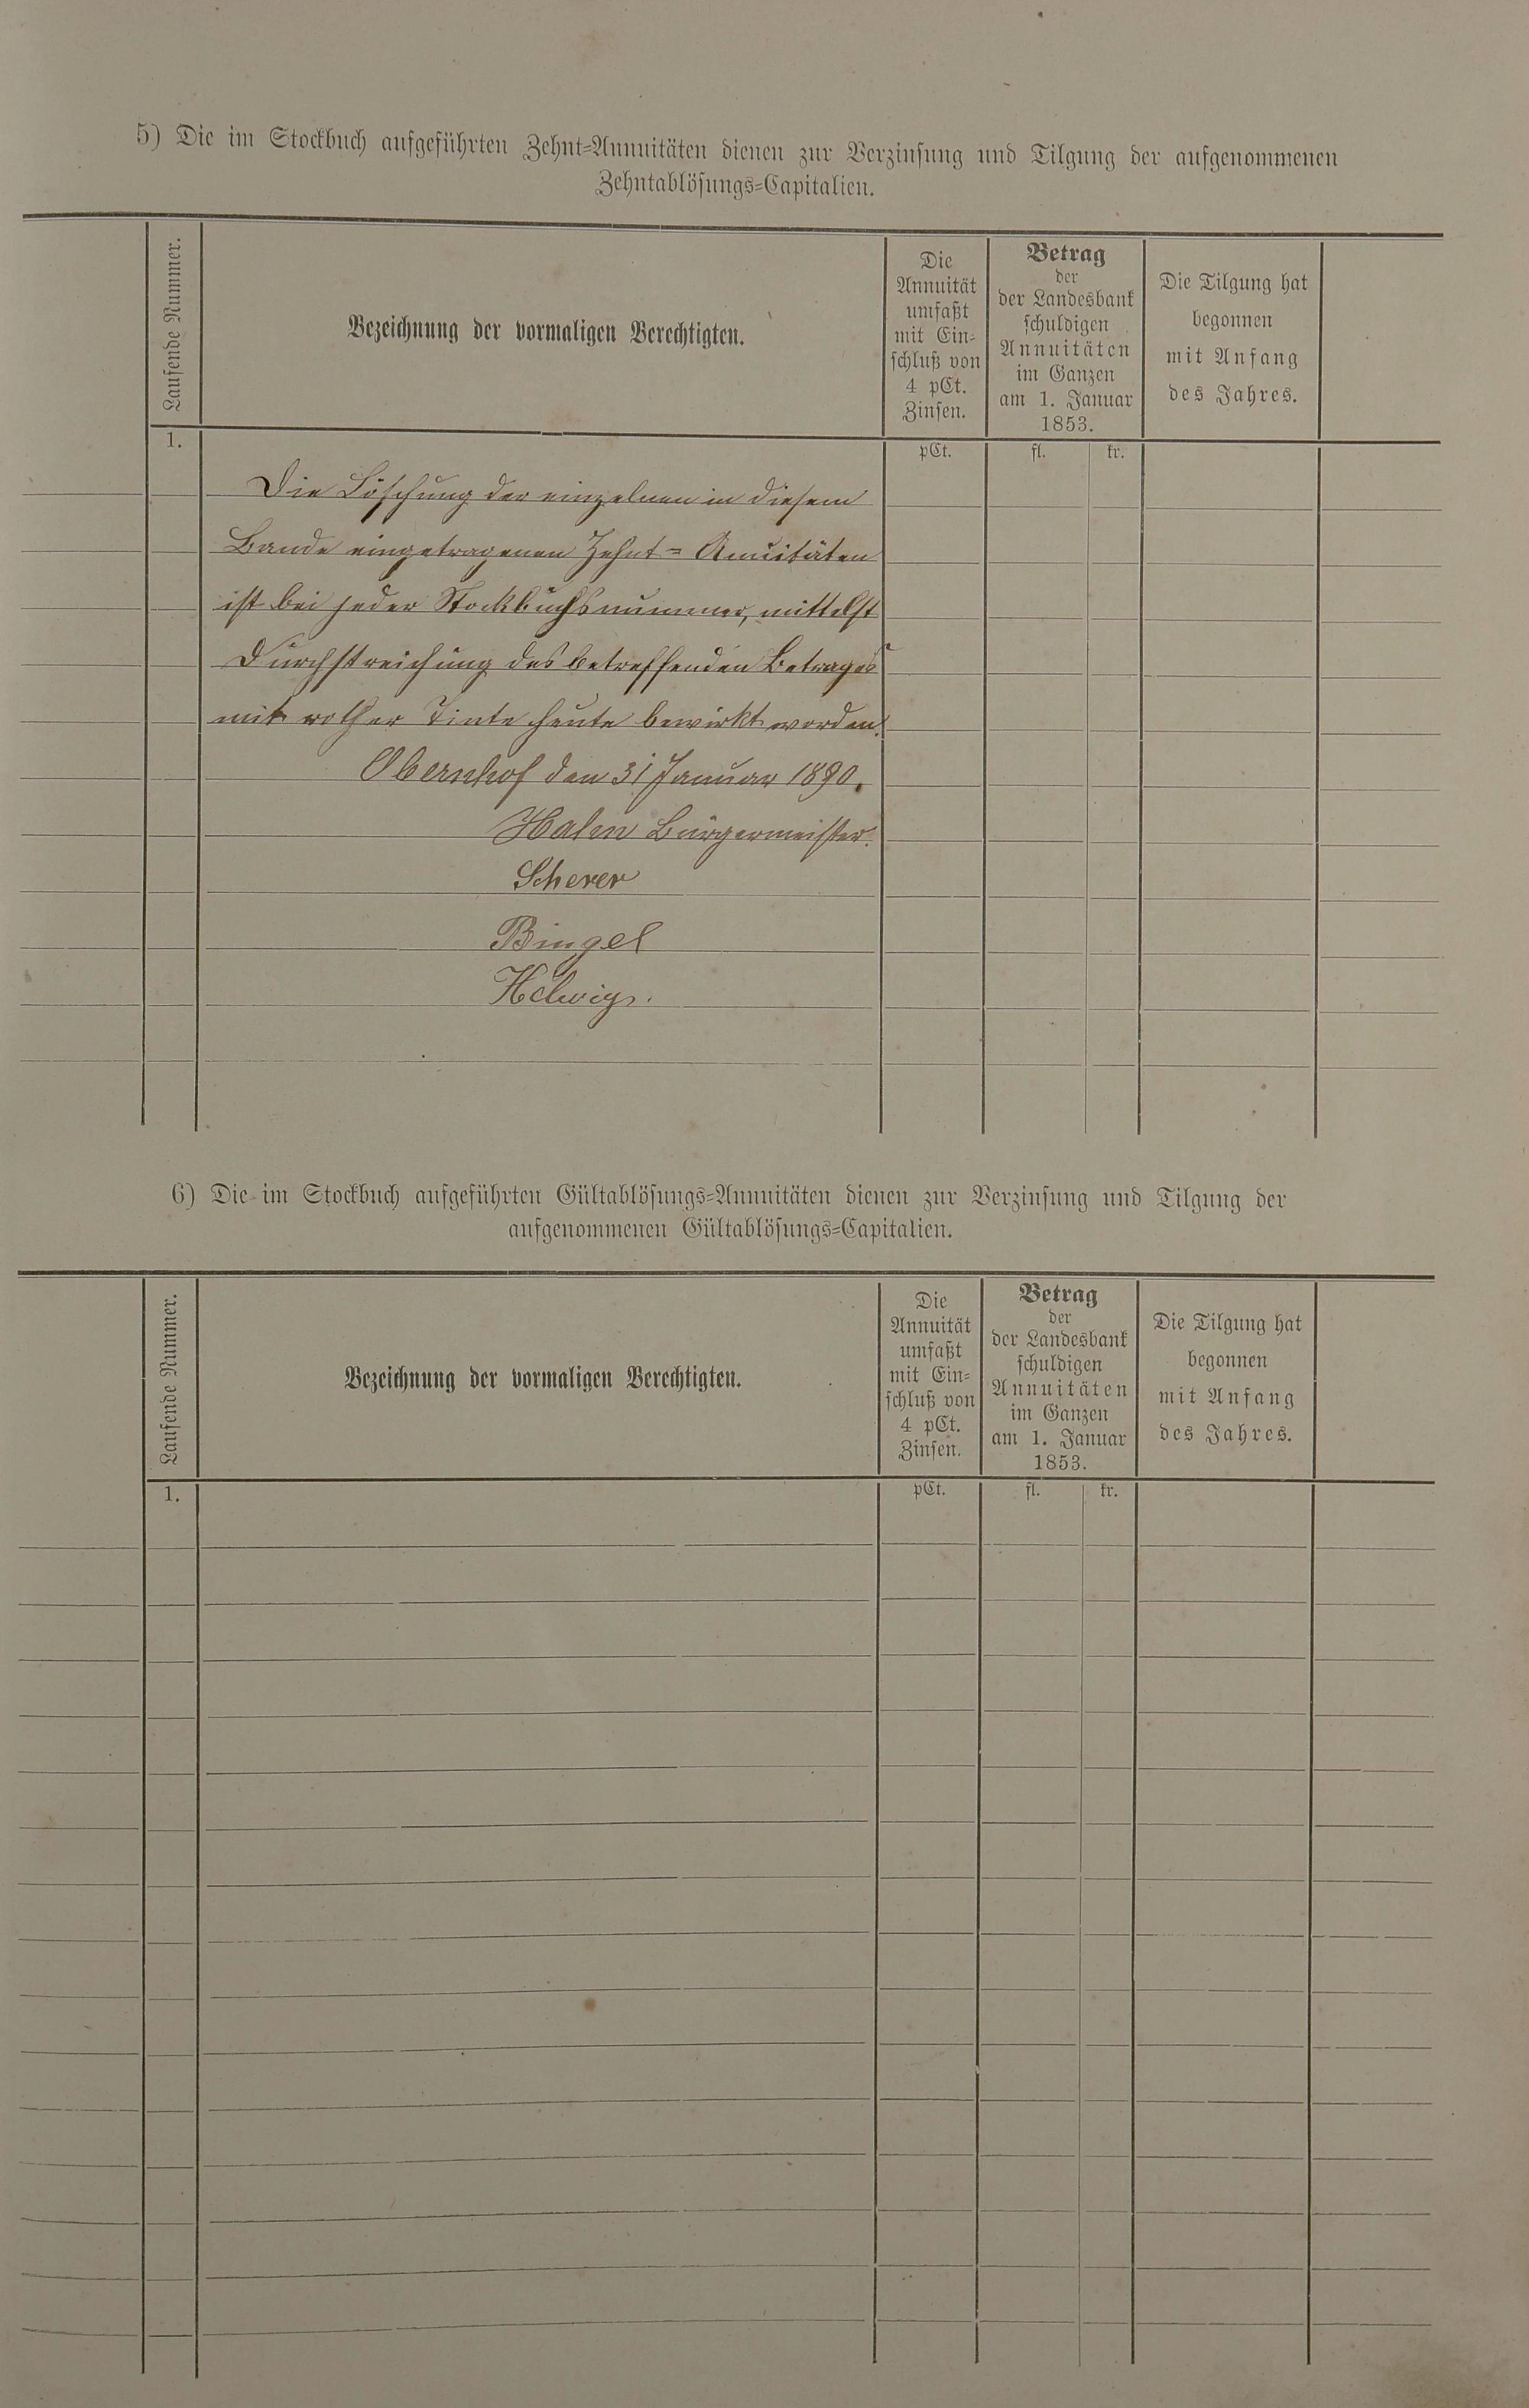 5) Die im Stockbuch aufgeführten Zehnt=Annuitäten dienen zur Verzinsung und Tilgung der aufgenommenen
Zehntablösungs=Capitalien.
Laufende Nummer.
Bezeichnung der vormaligen Berechtigten.
Die
Annuität
umfaßt
mit Ein=
schluß von
4 pCt.
Zinsen.
Betrag
der
der Landesbank
schuldigen
Annuitäten
im Ganzen
am 1. Januar
1853.
Die Tilgung hat
begonnen
mit Anfang
des Jahres.
1.
pCt.
fl.
kr.
Die Löschung der einzelnen in diesem
Bande eingetragenen Zehnt=Anuitäten
ist bei jeder Stockbuchsnummer, mittelst
Durchstreichung des betreffenden Betrages
mit rother Tinte heute bewirkt worden.
Obernhof den 31 Januar 1890.
Halen Bürgermeister.
Scherer
Bingel
Helwig.
6) Die im Stockbuch aufgeführten Gültablösungs=Annuitäten dienen zur Verzinsung und Tilgung der
aufgenommenen Gültablösungs=Capitalien.
Laufende Nummer.
Bezeichnung der vormaligen Berechtigten.
Die
Annuität
umfaßt
mit Ein=
schluß von
4 pCt.
Zinsen.
Betrag
der
der Landesbank
schuldigen
Annuitäten
im Ganzen
am 1. Januar
1853.
Die Tilgung hat
begonnen
mit Anfang
des Jahres.
1.
pCt.
fl.
kr.